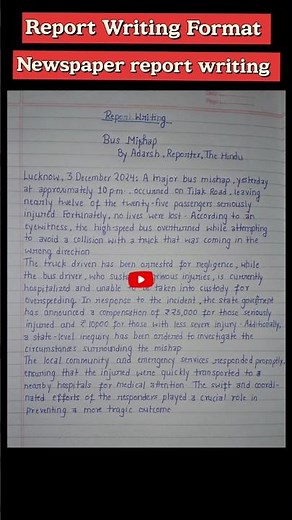 Report Writing Format
Newspaper report writing
Report Writing
Bus Mishap
By Adarsh, Reporter, The Hindu
Lucknow, 3 December 2024: A major bus mishap, yesterday
at approximately 10 pm, occurred on Tilak Road, leaving
nearly twelve of the twenty-five passengers seriously
injured. Fortunately, no lives were lost. According to an
eyewitness, the high-speed bus overturned while attempting
to avoid a collision with a truck that was coming in the
wrong direction
The truck driver has been arrested for negligence, while
the bus driver, who injuries, is currently
hospitalized and unable taken into custody for
overspeeding. In response to the incident, the state government
has announced a compensation of ₹25,000 for those seriously
injured and ₹10000 for those with less severe injury. Additionally,
a state-level inquiry has been ordered to investigate the
circumstances surrounding the mishap
The local community and emergency services responded promptly,
ensuring that the injured were quickly transported to a
nearby hospitals for medical attention. The swift and coordi-
nated efforts of the responders played a crucial role in
preventing a more tragic outcome